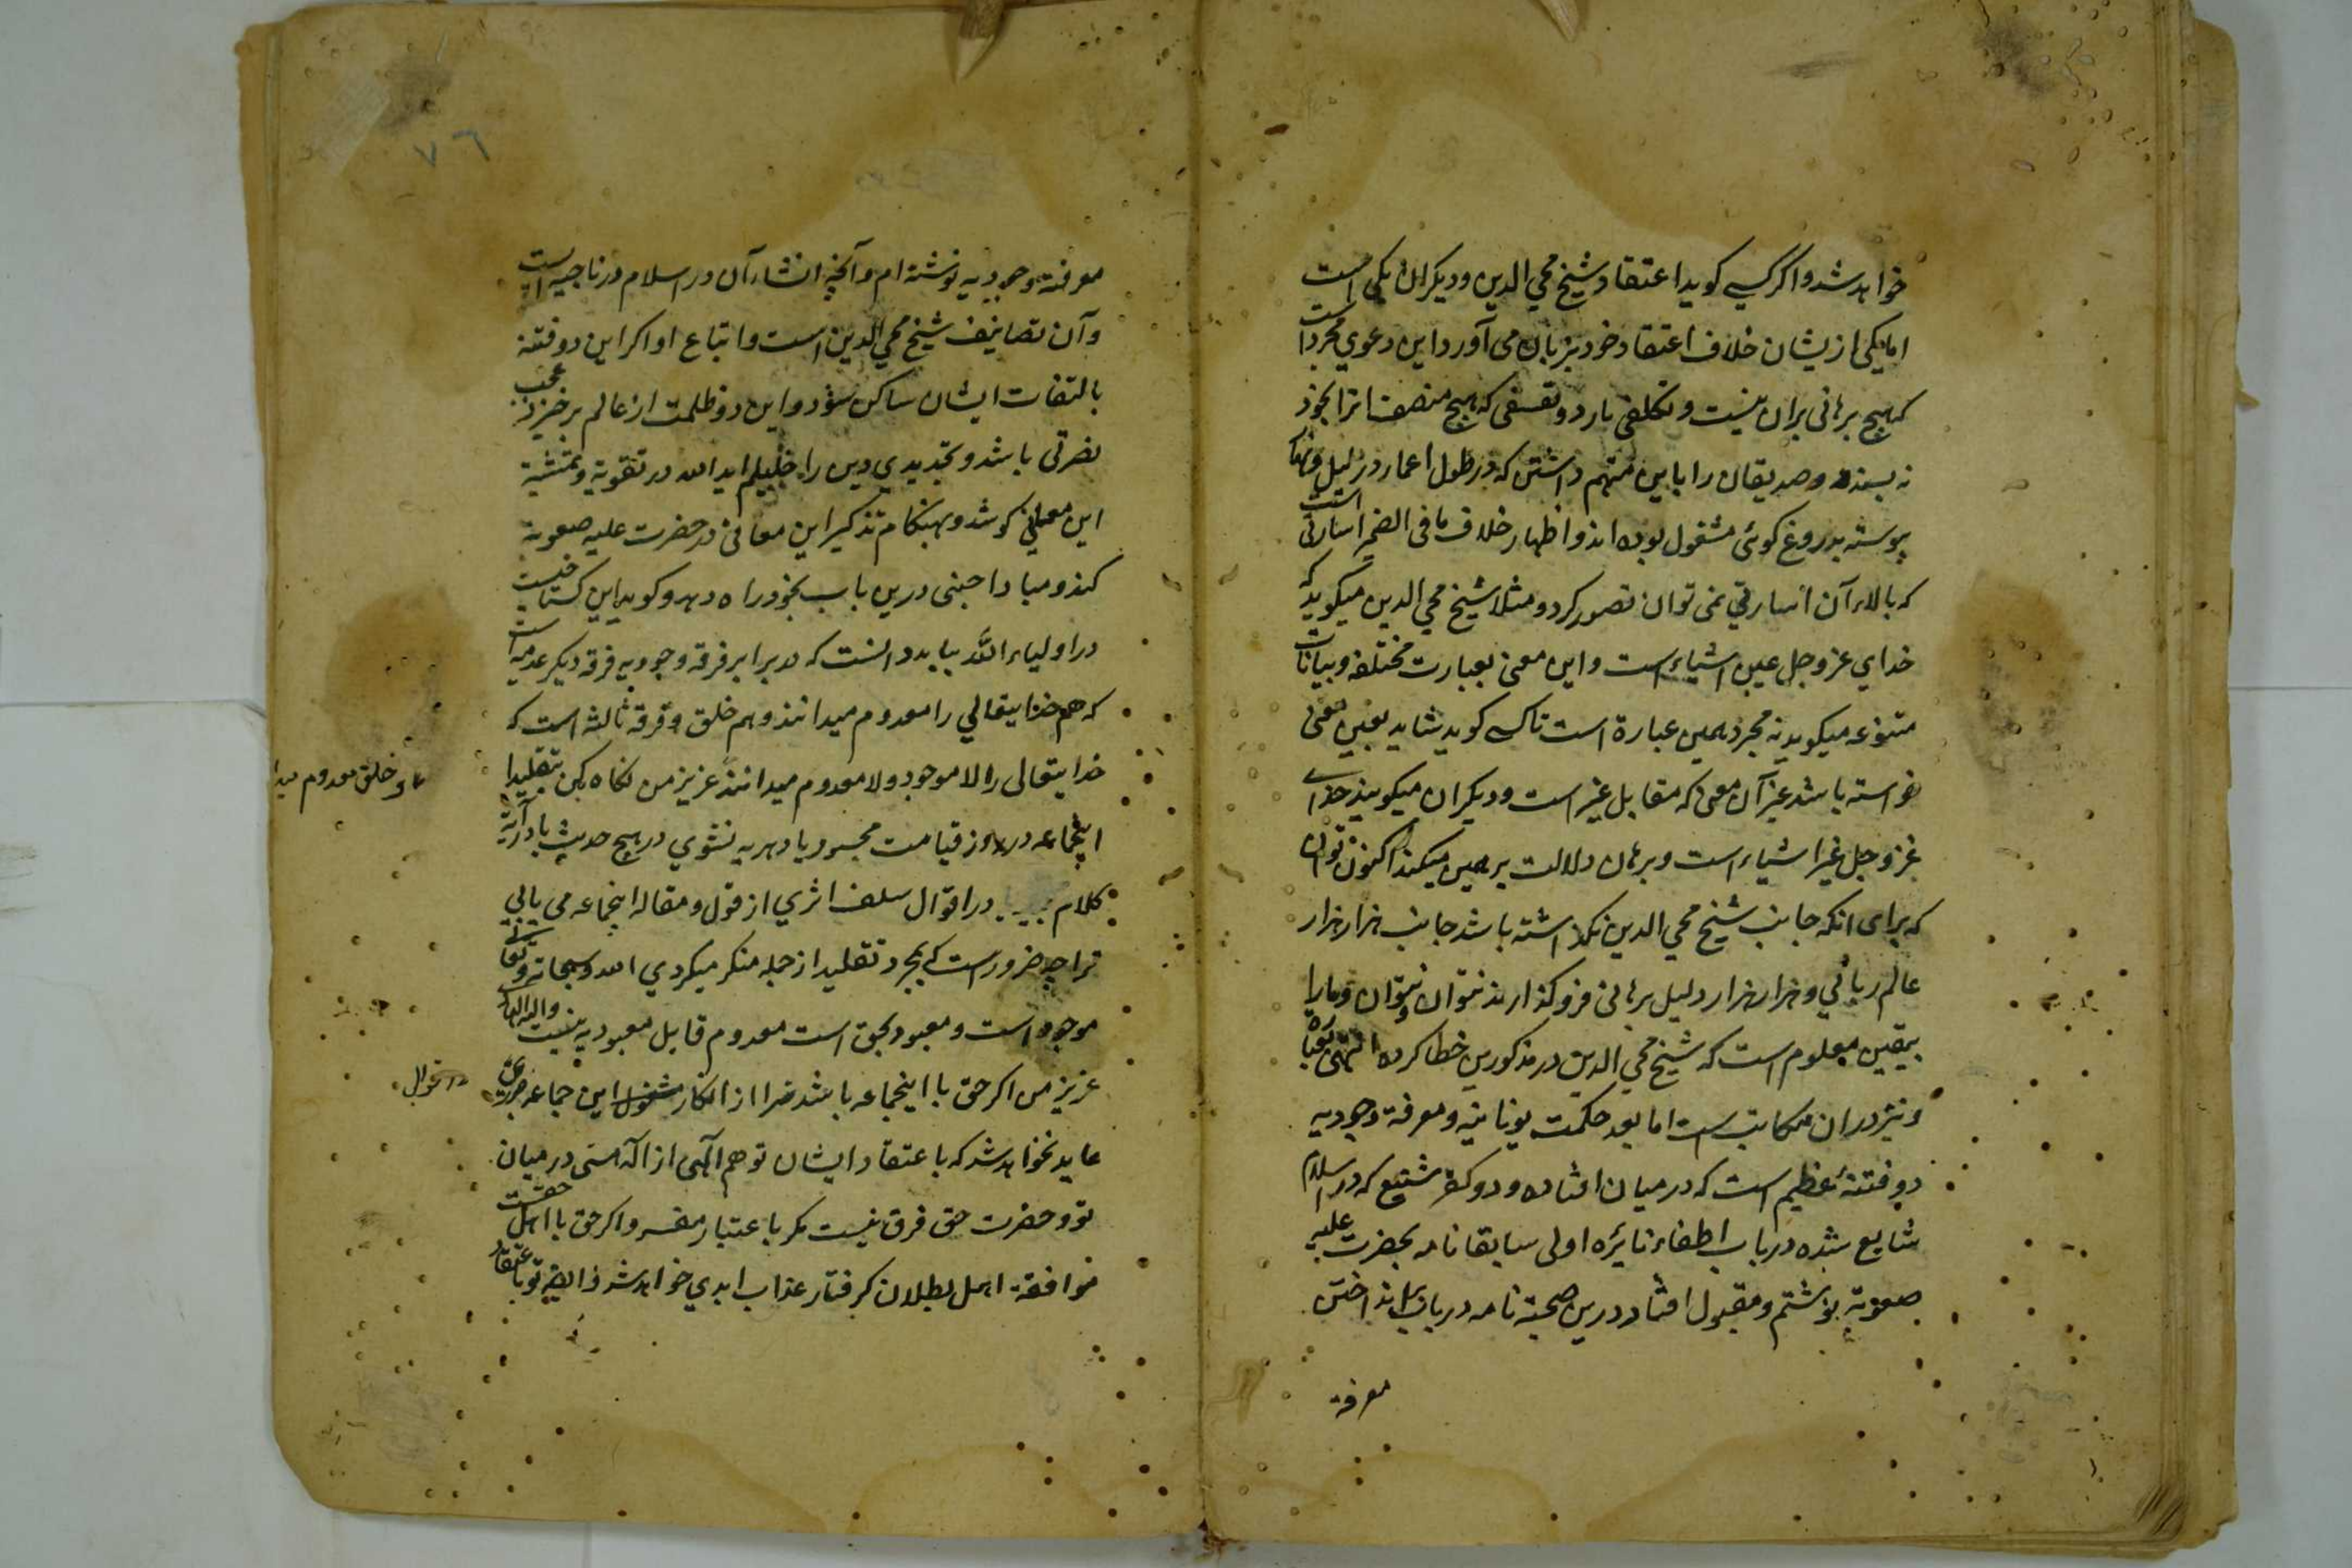 خواهد شد و اگر کسی کوید اعتقاد شیخ محی الدین و دیکران یکی است
اما یکی از یشان خلاف اعتقاد خود بزبان می آورد این دعوی مجرد است
که هیچ برهانی بران نیست و تکلفی بارد و تعسفی که هیچ منصف انرا بخود
نه پسندد و صدیقان را باین متهم داشتن که در طول اعمار در لیل و نهار
پیوسته بدروغ کوئی مشغول بوده اند و اظهار خلاف ما فی الضمیر اسارتی است
که بالاء آن اسارتی نمی توان تصور کرد و مثلا شیخ محی الدین میکوید که
خدای عز و جل عین اشیاء است و این معنی بعبارت مختلفه و بیانات
متنوعه میکوید نه مجرد همین عبارة است تا کسی کوید شاید بعین معنی
خواسته باشد غیر آن معنی که مقابل غیر است و دیکران میکویند خدای
عز و جل غیر اشیاء است و برهان دلالت بر همین میکند اکنون توان
که برای انکه جانب شیخ محی الدین نکذاشته باشد جانب هزار هزار
عالم ربانی و هزار هزار دلیل برهانی فرو کذارند نتوان نتوان و ما را
بیقین معلوم است که شیخ محی الدین در مذکورین خطا کرده انتهی
و نیز دران مکاتیب است اما بعد حکمت یونانیه و معرفة وجودیه
دو فتنهٔ عظیم است که در میان افتاده و دو کفر شنیع که در اسلام
شایع شده در باب اطفاء نائره اولی سابقا نامه بحضرت علیه
صعوبة نوشتم و مقبول افتاد درین صحبة نامه در باب بر انداختن
معرفة
٧٦
معرفة وجودیه نوشته ام و آنچه انشاء آن در اسلام در ناحیه است
و آن تصانیف شیخ محی الدین است و اتباع او اکر این دو فتنه
بالتفات ایشان ساکن شود و این دو ظلمت از عالم بر خیزد عجب
نصرتی باشد و تجدیدی دین را خلیلم ایده الله در تقویة و تمشیة
این معانی کوشد و بهنکام تذکیر این معانی در حضرت علیه صعوبة
کند و مبادا جبنی درین باب بخود راه دهد و کوید این کستاخیست
در اولیاء الله بباید دانست که در برابر فرقه وجودیه فرقه دیکر عدمیه است
که هم خدایتعالی را معدوم میدانند و هم خلق و فرقه ثالثه است که
خدایتعالی را لا موجود و لا معدوم میدانند عزیز من نکاه کن بتقلید
و خلق معدوم
اینجماعه در روز قیامت محسور با دهریه نشوی در هیچ حدیث یا در آیة
کلام در اقوال سلف اثری از قول و مقاله اینجماعه می یابی
ترا چه ضرور است که بمجرد تقلید از جمله منکر میکردی الله سبحانه و تعالی
موجود است و معبود بحق است معدوم قابل معبودیه نیست
عزیز من اکر حق با اینجماعه باشد ضرا از انکار این جماعه ضرری
عاید نخواهد شد که باعتقاد ایشان تو هم آلهی از آلهه متی در میان
تو و حضرت حق فرق نیست مکر باعتبار و اکر حق با اهل حقست
موافقة اهل بطلان کرفتار عذاب ابدی خواهد شد